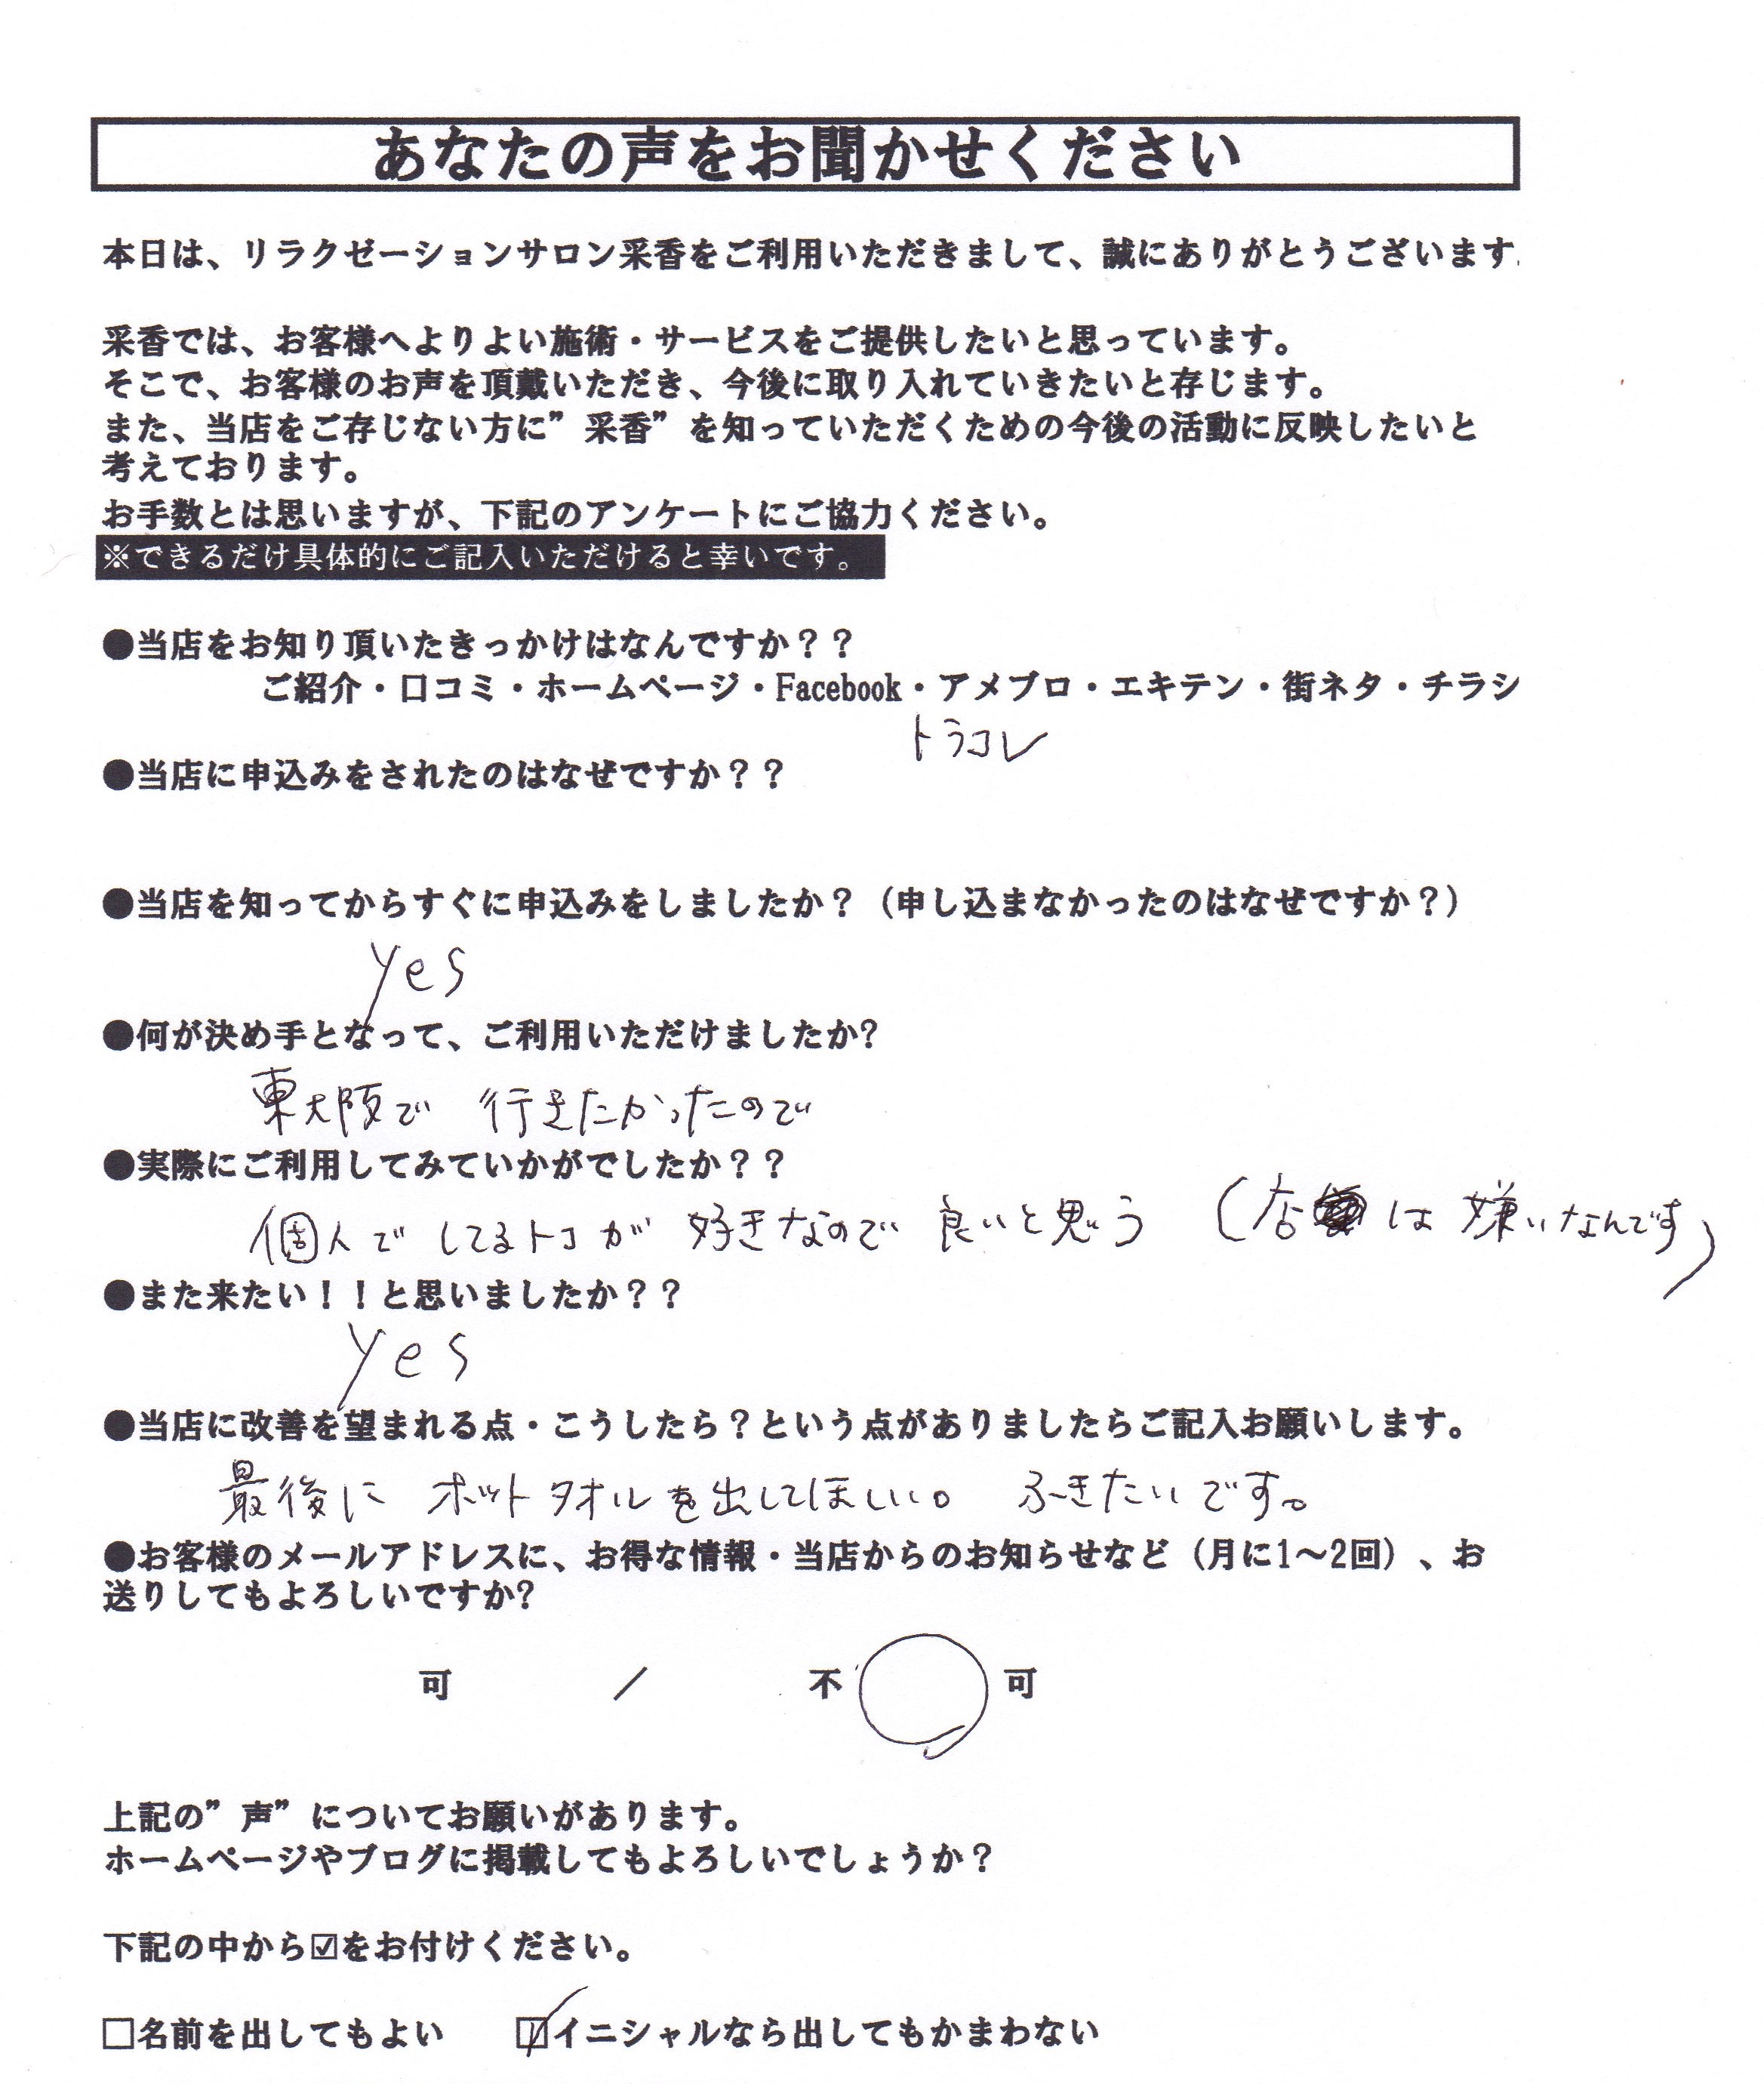 あなたの声をお聞かせください
本日は、リラクゼーションサロン采香をご利用いただきまして、誠にありがとうございます
采香では、お客様へよりよい施術・サービスをご提供したいと思っています。
そこで、お客様のお声を頂戴いただき、今後に取り入れていきたいと存じます。
また、当店をご存じない方に”采香”を知っていただくための今後の活動に反映したいと
考えております。
お手数とは思いますが、下記のアンケートにご協力ください。
※できるだけ具体的にご記入いただけると幸いです。
●当店をお知り頂いたきっかけはなんですか？？
ご紹介・口コミ・ホームページ・Facebook・アメブロ・エキテン・街ネタ・チラシ
トラコレ
●当店に申込みをされたのはなぜですか？？
●当店を知ってからすぐに申込みをしましたか？（申し込まなかったのはなぜですか？）
yes
●何が決め手となって、ご利用いただけましたか?
東大阪で 行きたかったので
●実際にご利用してみていかがでしたか？？
個人で してるトコが 好きなので 良いと思う （店は 嫌いなんです）
●また来たい！！と思いましたか？？
yes
●当店に改善を望まれる点・こうしたら？という点がありましたらご記入お願いします。
最後に ホットタオルを出してほしい。 ふきたいです。
●お客様のメールアドレスに、お得な情報・当店からのお知らせなど（月に1～2回）、お
送りしてもよろしいですか?
可 ／ 不 可
上記の”声”についてお願いがあります。
ホームページやブログに掲載してもよろしいでしょうか？
下記の中から☑をお付けください。
□名前を出してもよい ☑イニシャルなら出してもかまわない